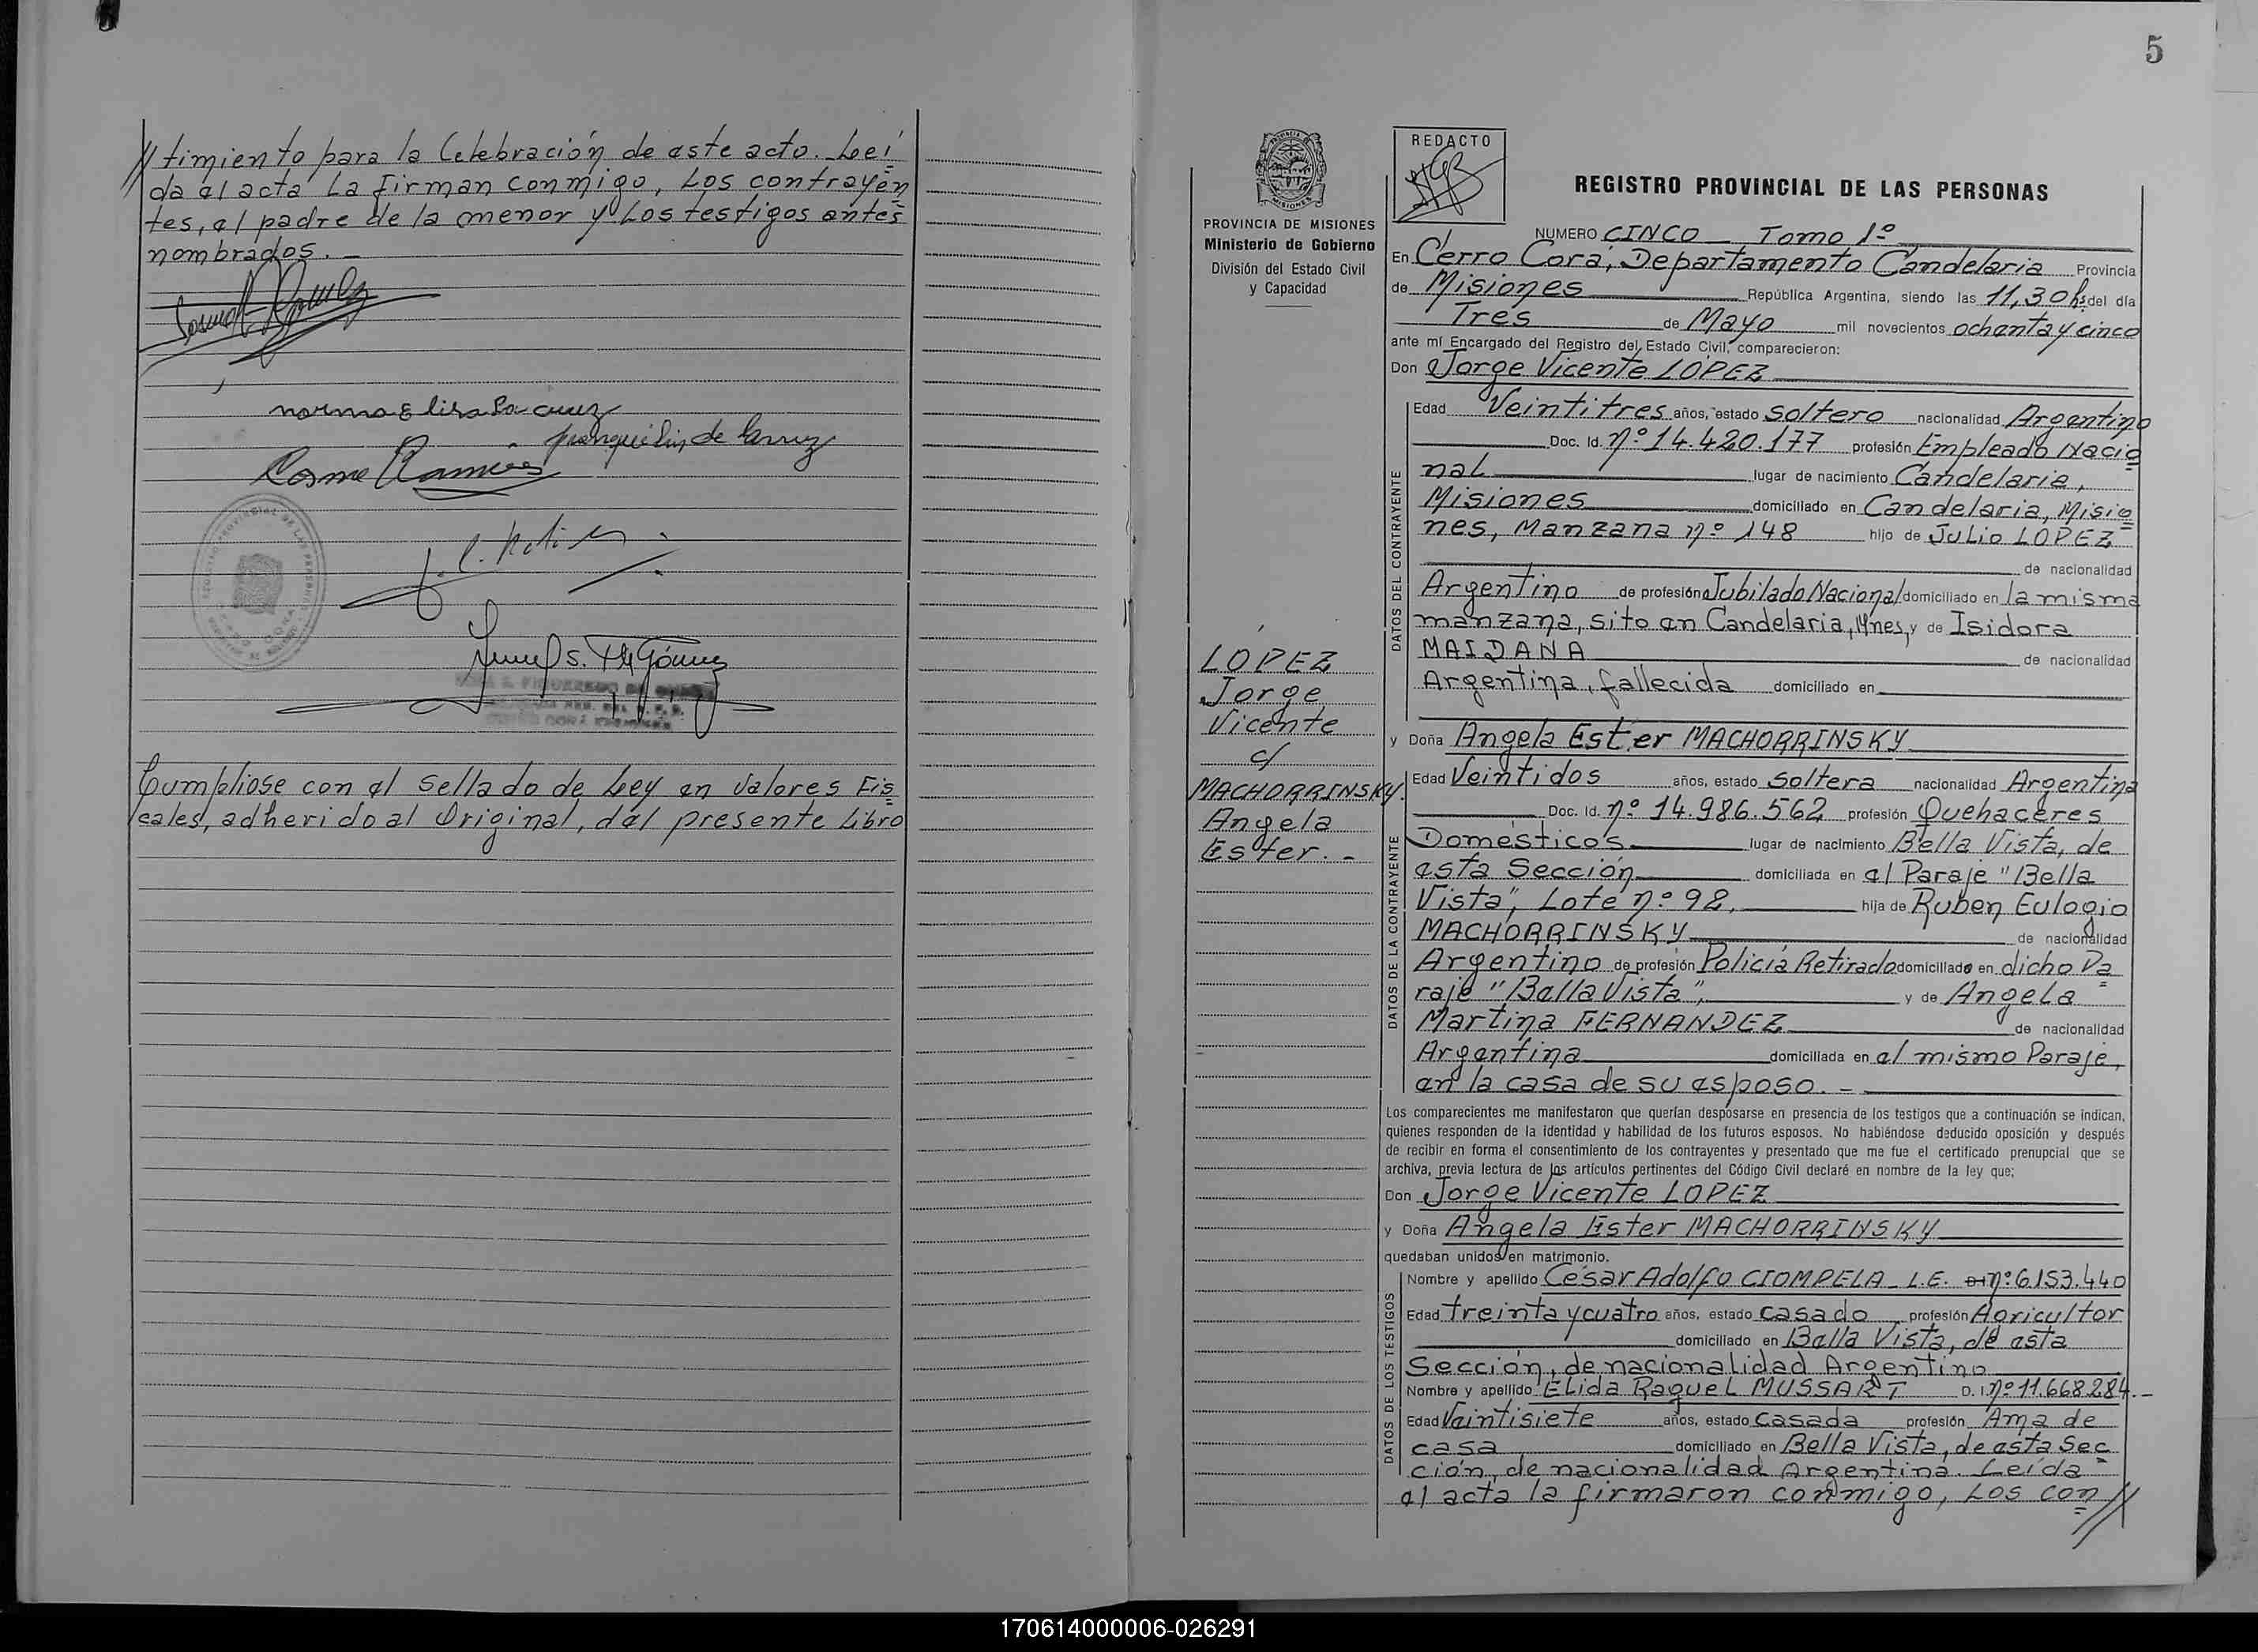 // timiento para la Celebración de este acto. Leí
da el acta la firman conmigo, los contrayen
tes, el padre de la menor y los testigos antes
nombrados. _
norma Elisa
Cosme Ramirez
Cumpliose con el sellado de Ley en Valores Fis
cales, adherido al Original, del presente Libro
5
PROVINCIA DE MISIONES
Ministerio de Gobierno
División del Estado Civil
y Capacidad
LOPEZ
Jorge
Vicente
c/
MACHORRINSKY.
Angela
Ester. -
REDACTO
REGISTRO PROVINCIAL DE LAS PERSONAS
NUMERO CINCO _ Tomo 1º
En Cerro Cora, Departamento Candelaria Provincia
de Misiones República Argentina, siendo las 11,30 hs. del día
Tres de Mayo mil novecientos ochenta y cinco
ante mí Encargado del Registro del Estado Civil, comparecieron:
Don Jorge Vicente LOPEZ
DATOS DEL CONTRAYENTE
Edad Veintitres años, estado soltero nacionalidad Argentino
Doc. Id. nº 14.420.177 profesión Empleado Nacio
nal lugar de nacimiento Candelaria,
Misiones domiciliado en Candelaria, Misio
nes, Manzana nº 148 hijo de Julio LOPEZ
de nacionalidad
Argentino de profesión Jubilado Nacional domiciliado en la misma
manzana, sito en Candelaria, Mnes, y de Isidora
MAIDANA de nacionalidad
Argentina, fallecida domiciliado en
y Doña Angela Ester MACHORRINSKY
DATOS DE LA CONTRAYENTE
Edad Veintidos años, estado soltera nacionalidad Argentina
Doc. Id. nº 14.986.562 profesión Quehaceres
Domésticos lugar de nacimiento Bella Vista, de
esta Sección domiciliada en el Paraje "Bella
Vista", Lote nº 92, hija de Ruben Eulogio
MACHORRINSKY de nacionalidad
Argentino de profesión Policia Retirado domiciliado en dicho Pa
raje "Bella Vista", y de Angela
Martina FERNANDEZ de nacionalidad
Argentina domiciliada en el mismo Paraje,
en la casa de su esposo. -
Los comparecientes me manifestaron que querían desposarse en presencia de los testigos que a continuación se indican,
quienes responden de la identidad y habilidad de los futuros esposos. No habiéndose deducido oposición y después
de recibir en forma el consentimiento de los contrayentes y presentado que me fue el certificado prenupcial que se
archiva, previa lectura de los artículos pertinentes del Código Civil declaré en nombre de la ley que;
Don Jorge Vicente LOPEZ
y Doña Angela Ester MACHORRINSKY
quedaban unidos en matrimonio.
DATOS DE LOS TESTIGOS
Nombre y apellido César Adolfo CIOMPELA _ L.E. nº 6.153.440
Edad treinta y cuatro años, estado casado profesión Agricultor
domiciliado en Bella Vista, de esta
Sección, de nacionalidad Argentino
Nombre y apellido Elida Raquel MUSSART D. I. nº 11.668.284._
Edad Veintisiete años, estado casada profesión Ama de
casa domiciliado en Bella Vista, de esta Sec
ción, de nacionalidad Argentina. Leída
el acta la firmaron conmigo, los con //
170614000006-026291